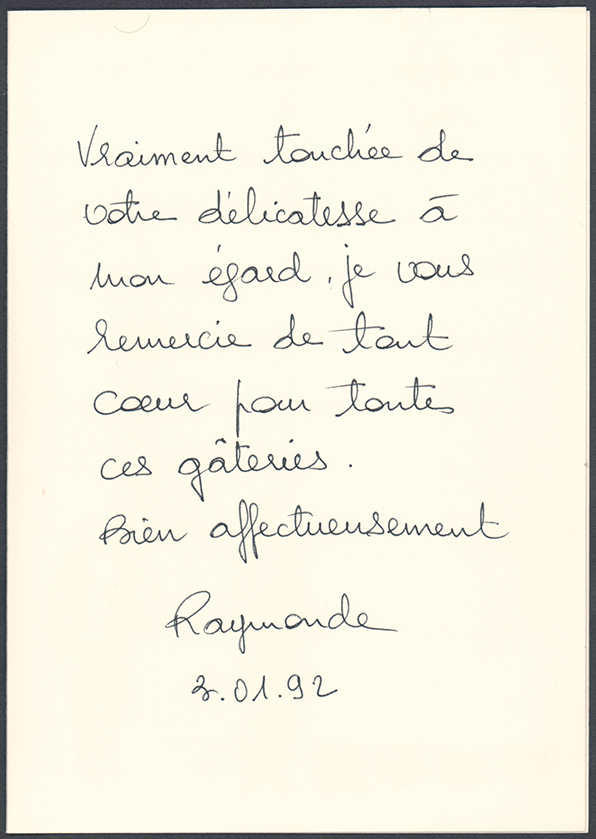 Vraiment touchée de
votre délicatesse à
mon égard, je vous
remercie de tout
cœur pour toutes
ces gâteries.
Bien affectueusement
Raymonde
3.01.92